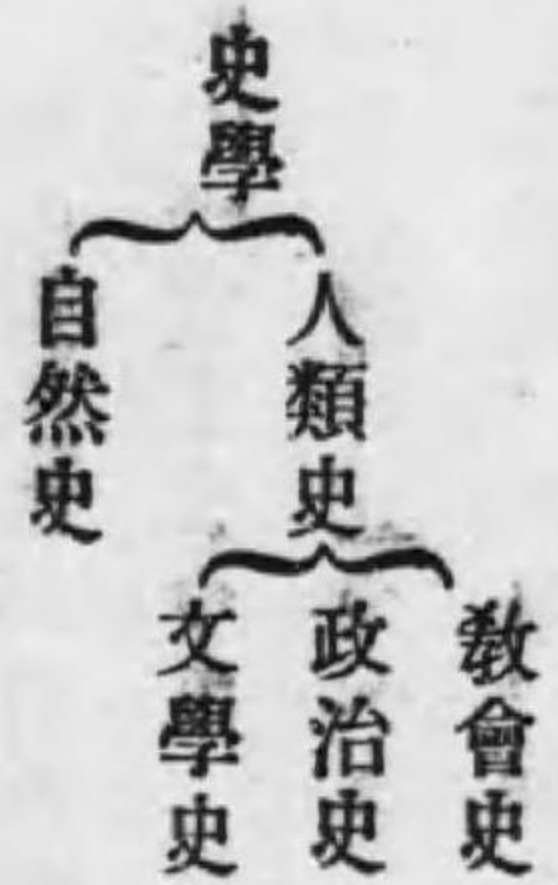 史學
人類史
自然史
敎會史
政治史
文學史